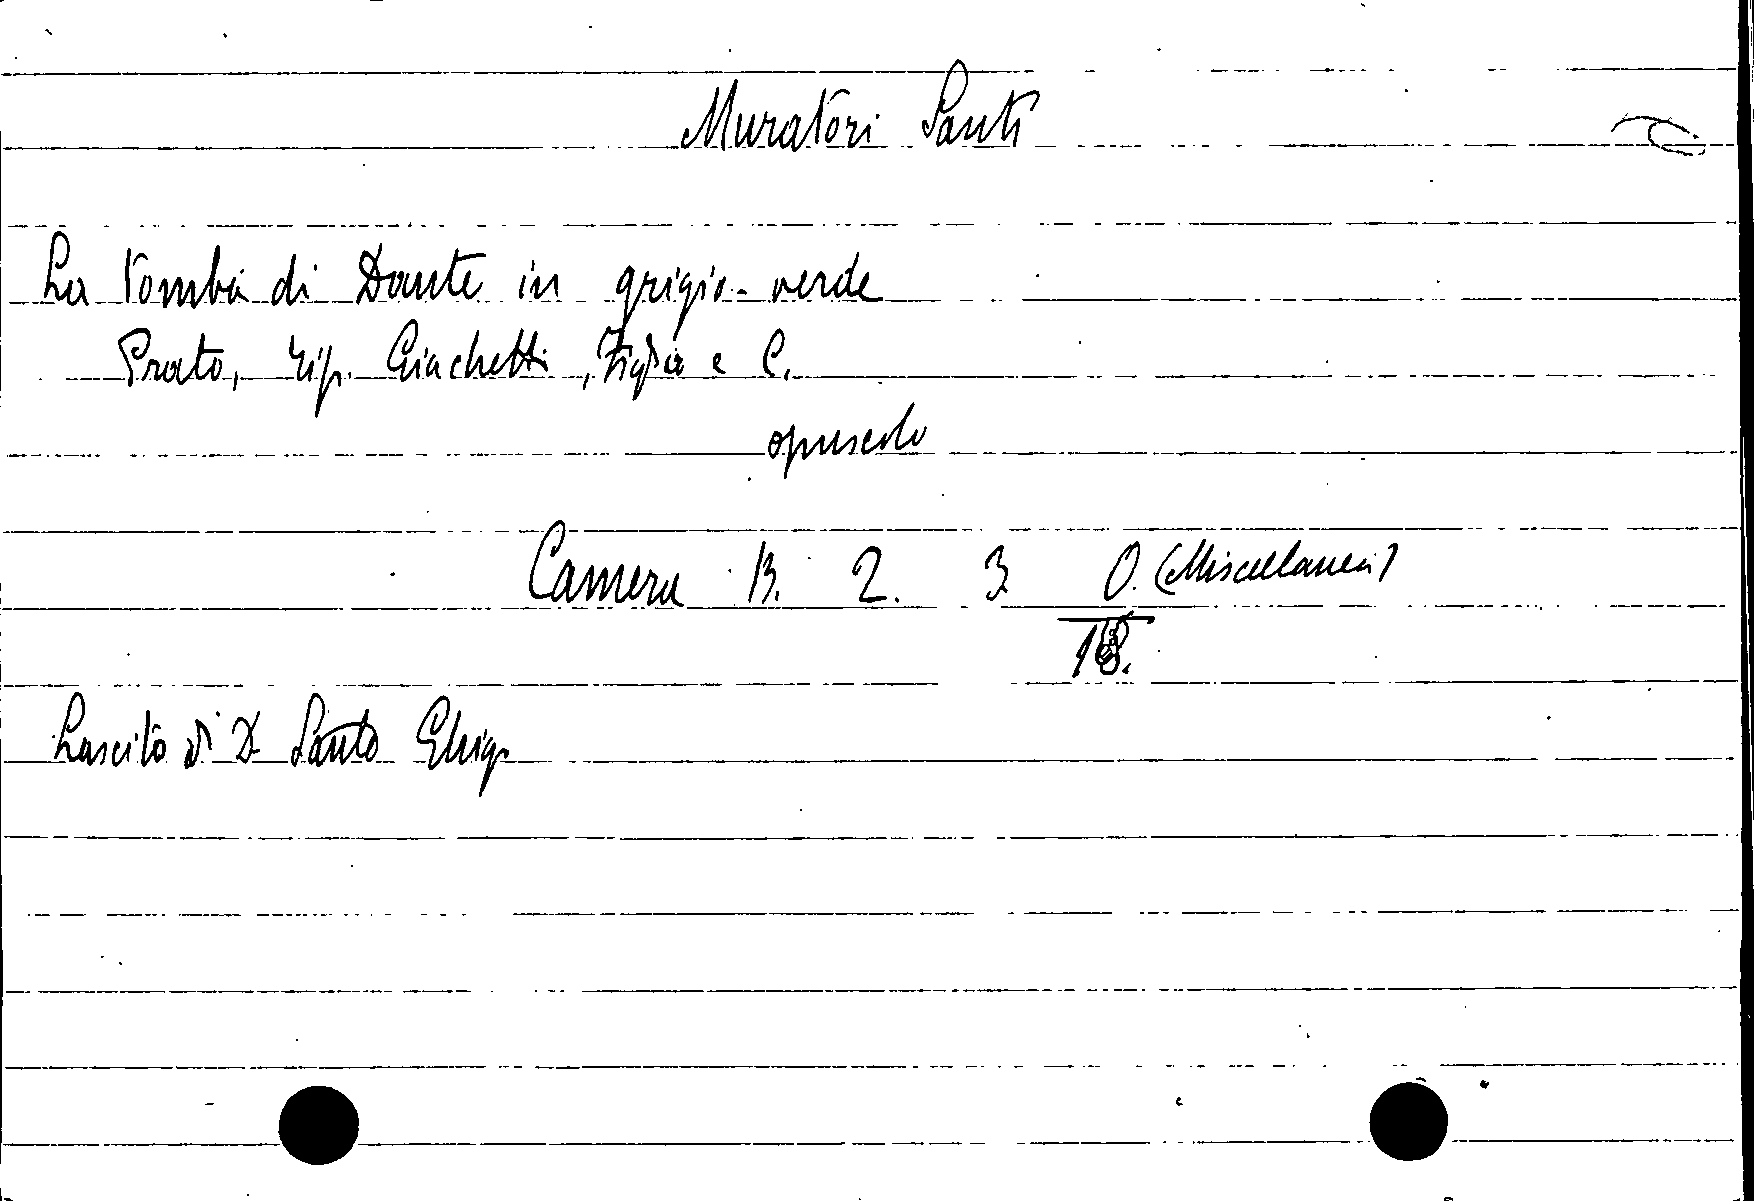 Muratori Santi
La Tomba di Dante in grigio-verde
Prato, Tip. Giachetti, Figlio e C.
opuscolo
Camera B. 2. 3. O. (Miscellanea)
18.
Lascito di D. Santo Ghigi